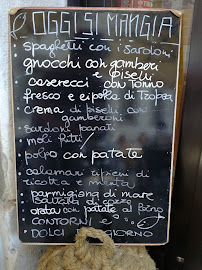 OGGI SI MANGIA
spaghetti con i sardoni
gnocchi con gamberi
e piselli
caserecci con tonno
fresco e cipolla di Tropea
crema di piselli con
gamberoni
sardoni panati
moli fritti
polpo con patate
calamari ripieni di
ricotta e menta
parmigiana di mare
di cozze
orata con patate al forno
CONTORNI
DOLCI GIORNO